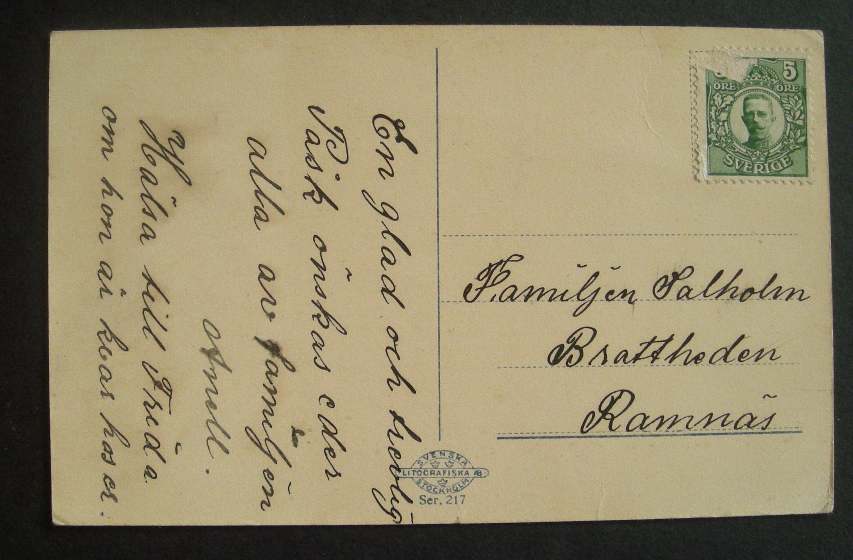 En glad och trevlig
Påsk önskas eder
alla av familjen
Anell.
Hälsa till Frida
om hon är kvar hos er.
5
ÖRE ÖRE
SVERIGE
Familjen Salholm
Brattheden
Ramnäs
SVENSKA
LITOGRAFISKA AB
STOCKHOLM
Ser. 217